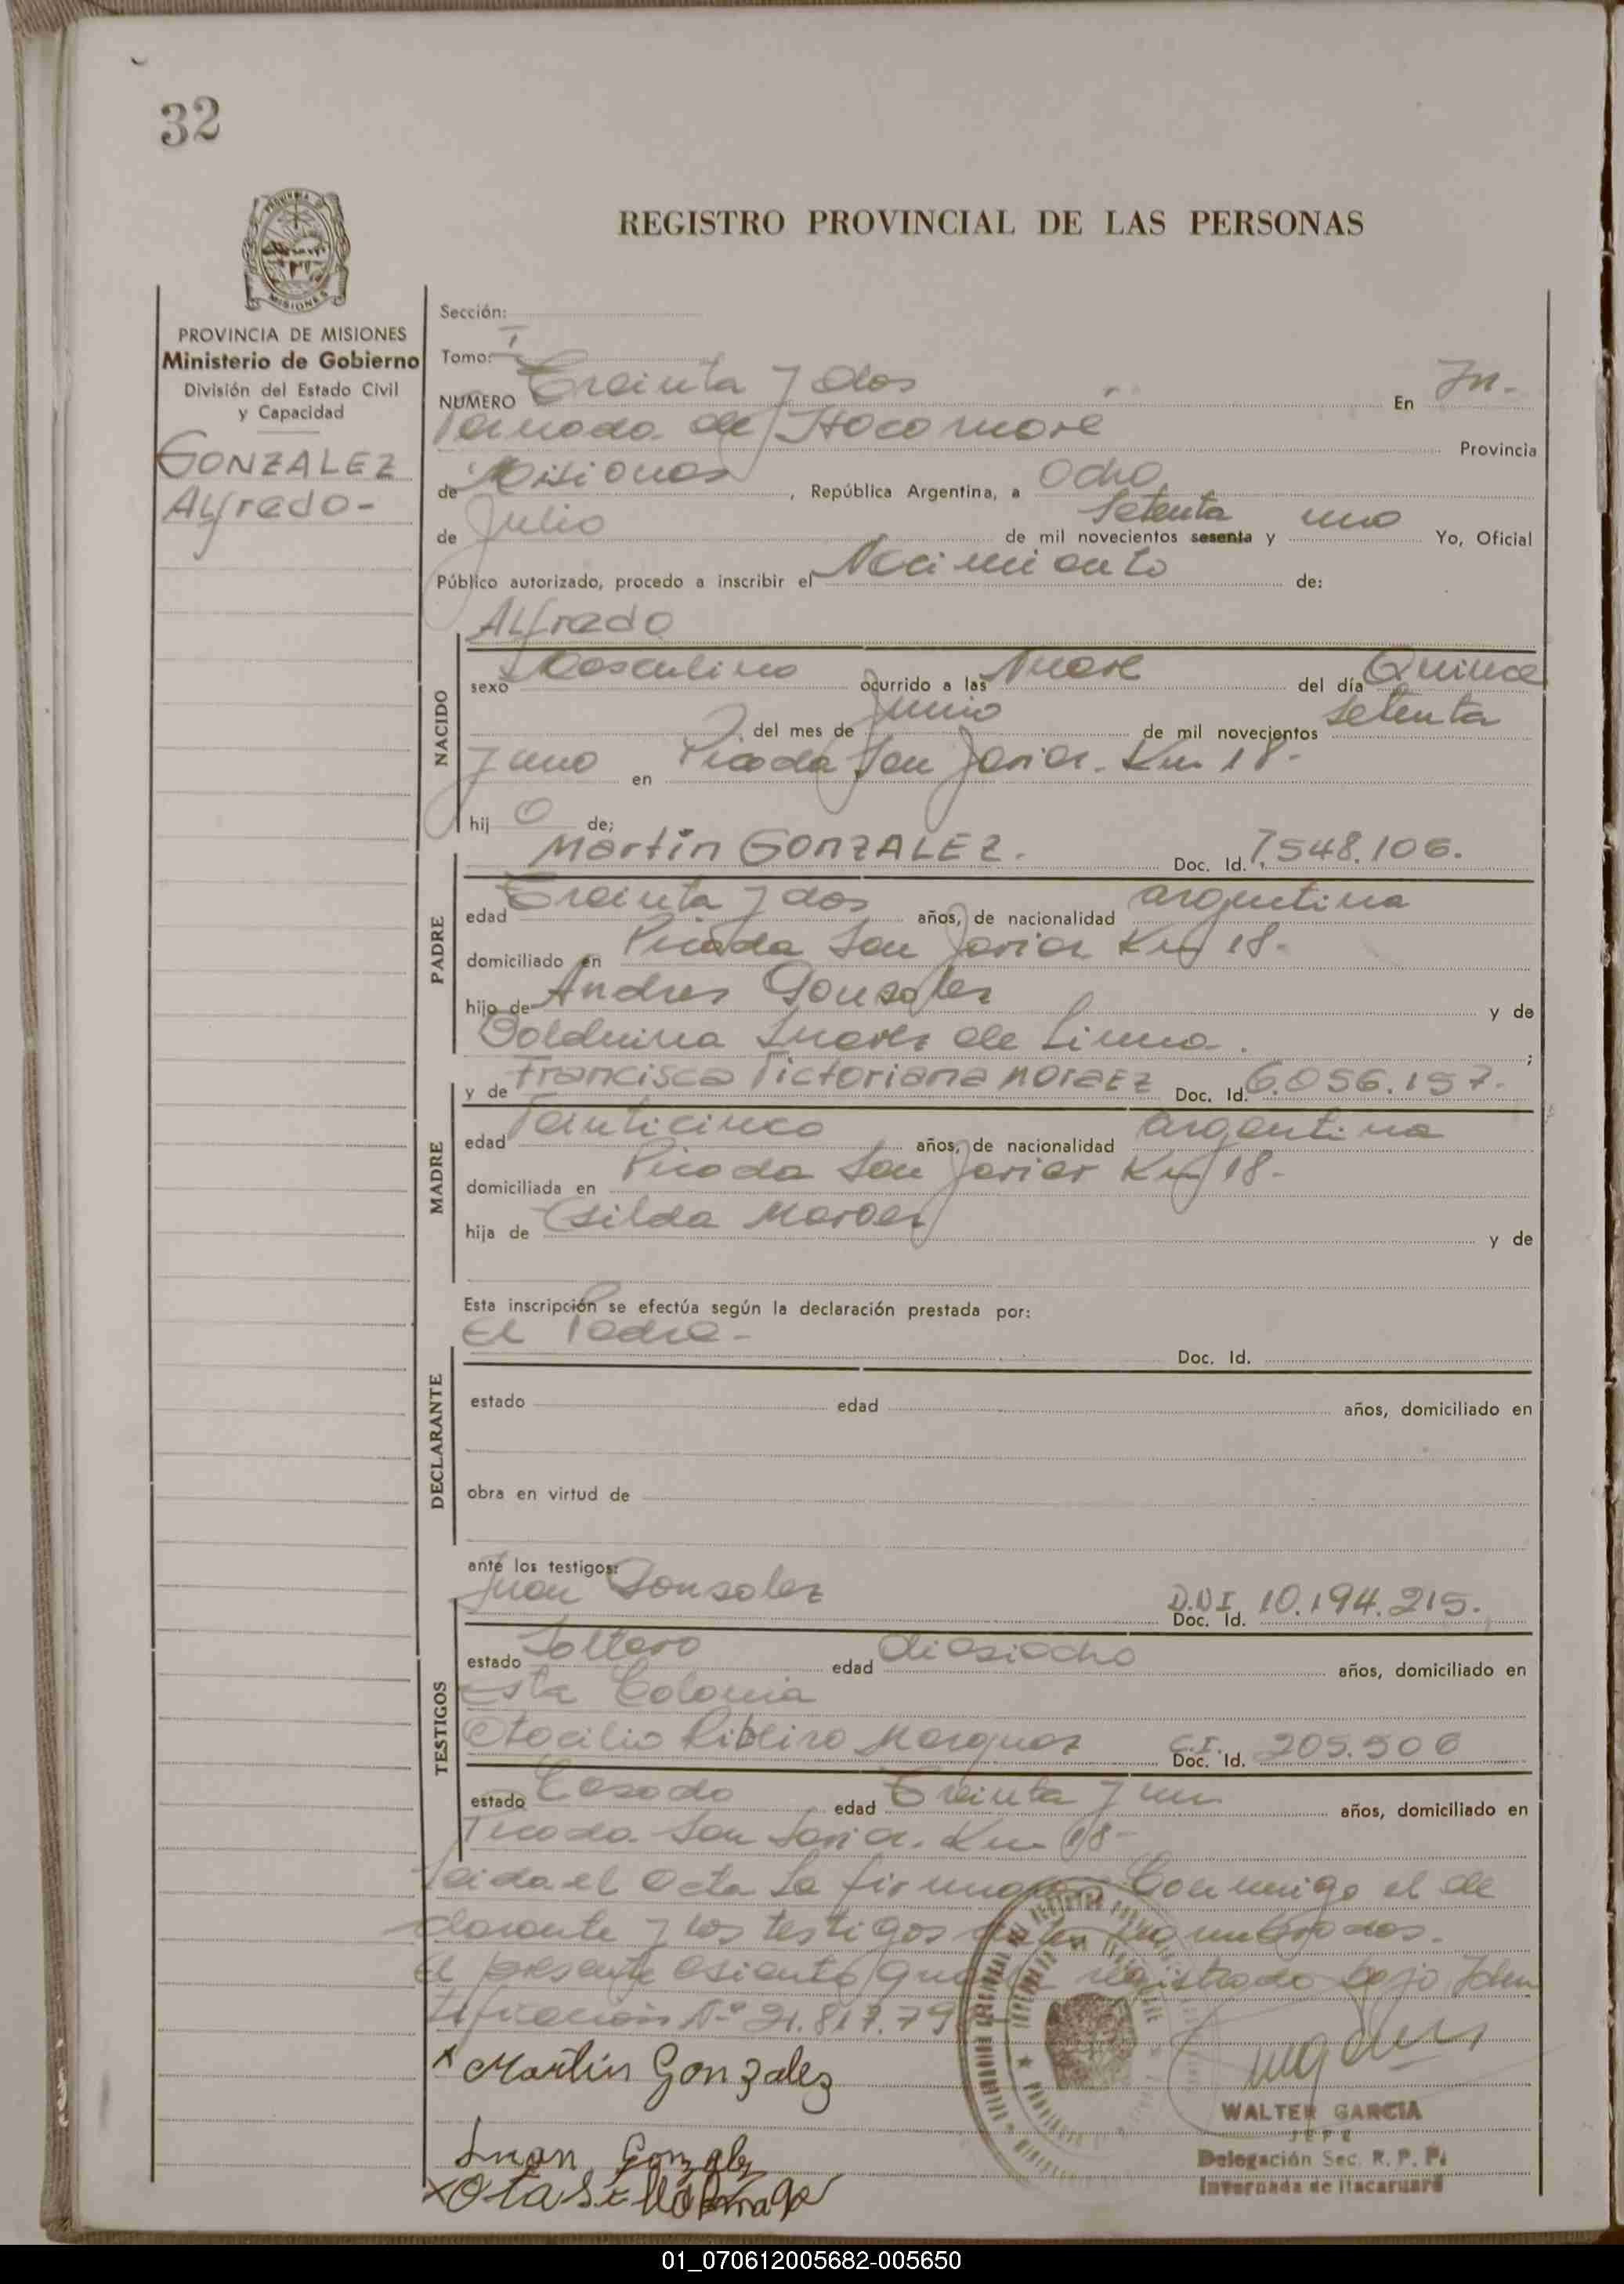 32
REGISTRO PROVINCIAL DE LAS PERSONAS
MISIONES
PROVINCIA DE MISIONES
Ministerio de Gobierno
División del Estado Civil
y Capacidad
GONZALEZ
Alfredo-
Sección:
Tomo: I
NUMERO Treinta y dos En In-
vernada de Itacaruaré Provincia
de Misiones, República Argentina, a Ocho
de Julio de mil novecientos sesenta y Setenta uno Yo, Oficial
Público autorizado, procedo a inscribir el Nacimiento de:
Alfredo
NACIDO
sexo Masculino ocurrido a las Nueve del día Quince
del mes de Junio de mil novecientos Setenta
y uno en Picada San Javier. Km 18-
hij o de;
PADRE
Martín GONZALEZ. Doc. Id. 7.548.106.
edad Treinta y dos años, de nacionalidad argentina
domiciliado en Picada San Javier Km 18-
hijo de Andres Gonsalez y de
de Lima. ;
MADRE
y de Francisca Victoriana MORAEZ Doc. Id. 6.056.157.
edad Veinticinco años, de nacionalidad argentina
domiciliada en Picada San Javier Km 18-
hija de Gilda Moraez y de
Esta inscripción se efectúa según la declaración prestada por:
El Padre-
Doc. Id.
DECLARANTE
estado edad años, domiciliado en
obra en virtud de
ante los testigos:
Juan Gonsalez D.N.I Doc. Id. 10.194.215.
TESTIGOS
estado Soltero edad diesiocho años, domiciliado en
esta Colonia
Otacilio Ribeiro Marquez C.I. Doc. Id. 205.506
estado Casado edad Treinta y un años, domiciliado en
Picada San Javier. Km 18-
Leida el acta la firman Conmigo el de
clarante y los testigos
El presente asiento registrado bajo Iden
tificacion Nº 21.817.79
x Martín Gonzalez
Juan Gonzalez
WALTER GARCIA
JEFE
Delegación Sec. R. P. P.
Invernada de Itacaruaré
01_070612005682-005650